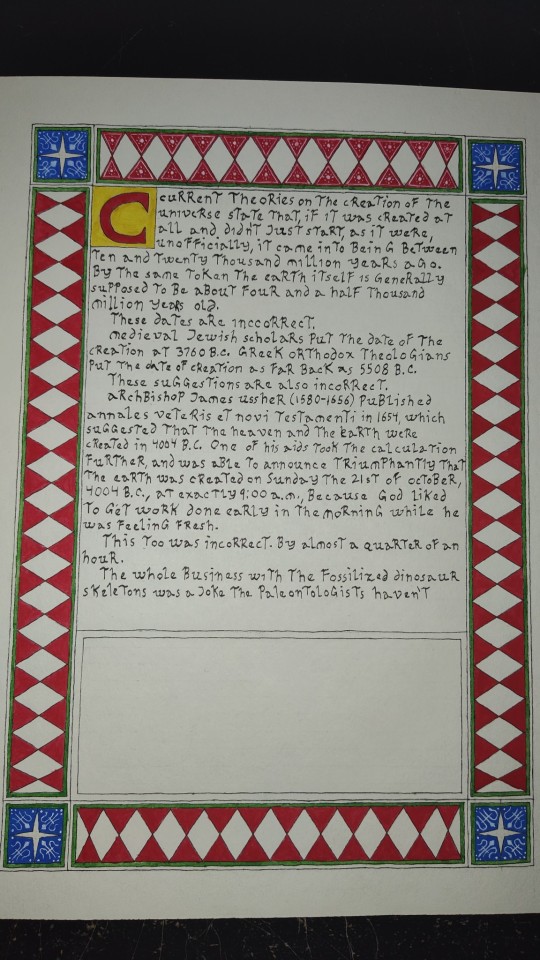 C
CURRENT THEORIES ON THE CREATION OF THE
UNIVERSE STATE THAT, IF IT WAS CREATED AT
ALL AND DIDN'T JUST START, AS IT WERE,
UNOFFICIALLY, IT CAME INTO BEING BETWEEN
TEN AND TWENTY THOUSAND MILLION YEARS AGO.
BY THE SAME TOKEN THE EARTH ITSELF IS GENERALLY
SUPPOSED TO BE ABOUT FOUR AND A HALF THOUSAND
MILLION YEARS OLD.
THESE DATES ARE INCCORRECT.
MEDIEVAL JEWISH SCHOLARS PUT THE DATE OF THE
CREATION AT 3760 B.C. GREEK ORTHODOX THEOLOGIANS
PUT THE DATE OF CREATION AS FAR BACK AS 5508 B.C.
THESE SUGGESTIONS ARE ALSO INCORRECT.
ARCHBISHOP JAMES USSHER (1580-1656) PUBLISHED
ANNALES VETERIS ET NOVI TESTAMENTI IN 1654, WHICH
SUGGESTED THAT THE HEAVEN AND THE EARTH WERE
CREATED IN 4004 B.C. ONE OF HIS AIDS TOOK THE CALCULATION
FURTHER, AND WAS ABLE TO ANNOUNCE TRIUMPHANTLY THAT
THE EARTH WAS CREATED ON SUNDAY THE 21ST OF OCTOBER,
4004 B.C., AT EXACTLY 9:00 A.M., BECAUSE GOD LIKED
TO GET WORK DONE EARLY IN THE MORNING WHILE HE
WAS FEELING FRESH.
THIS TOO WAS INCORRECT. BY ALMOST A QUARTER OF AN
HOUR.
THE WHOLE BUSINESS WITH THE FOSSILIZED DINOSAUR
SKELETONS WAS A JOKE THE PALEONTOLOGISTS HAVEN'T